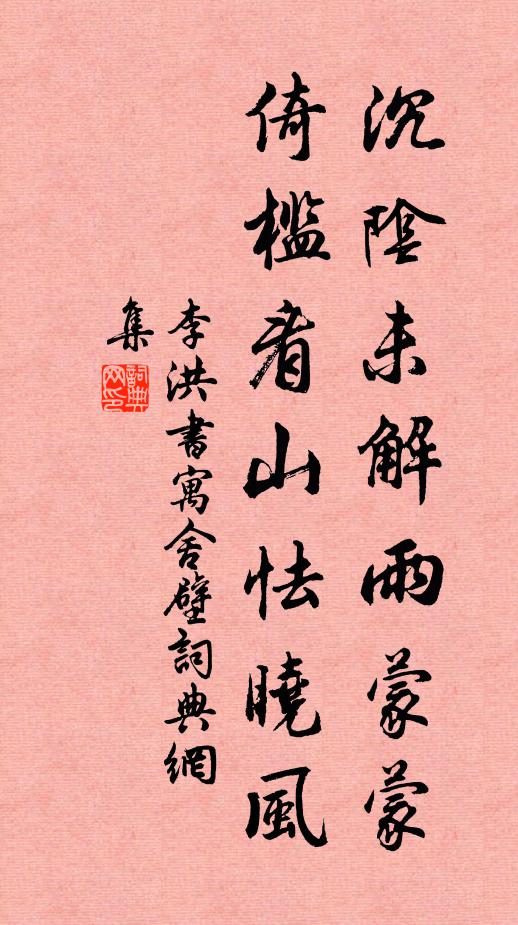 沉陰未解雨蒙蒙
倚檻看山怯曉風
李洪書寓舍壁詞典網
集
詞典網印